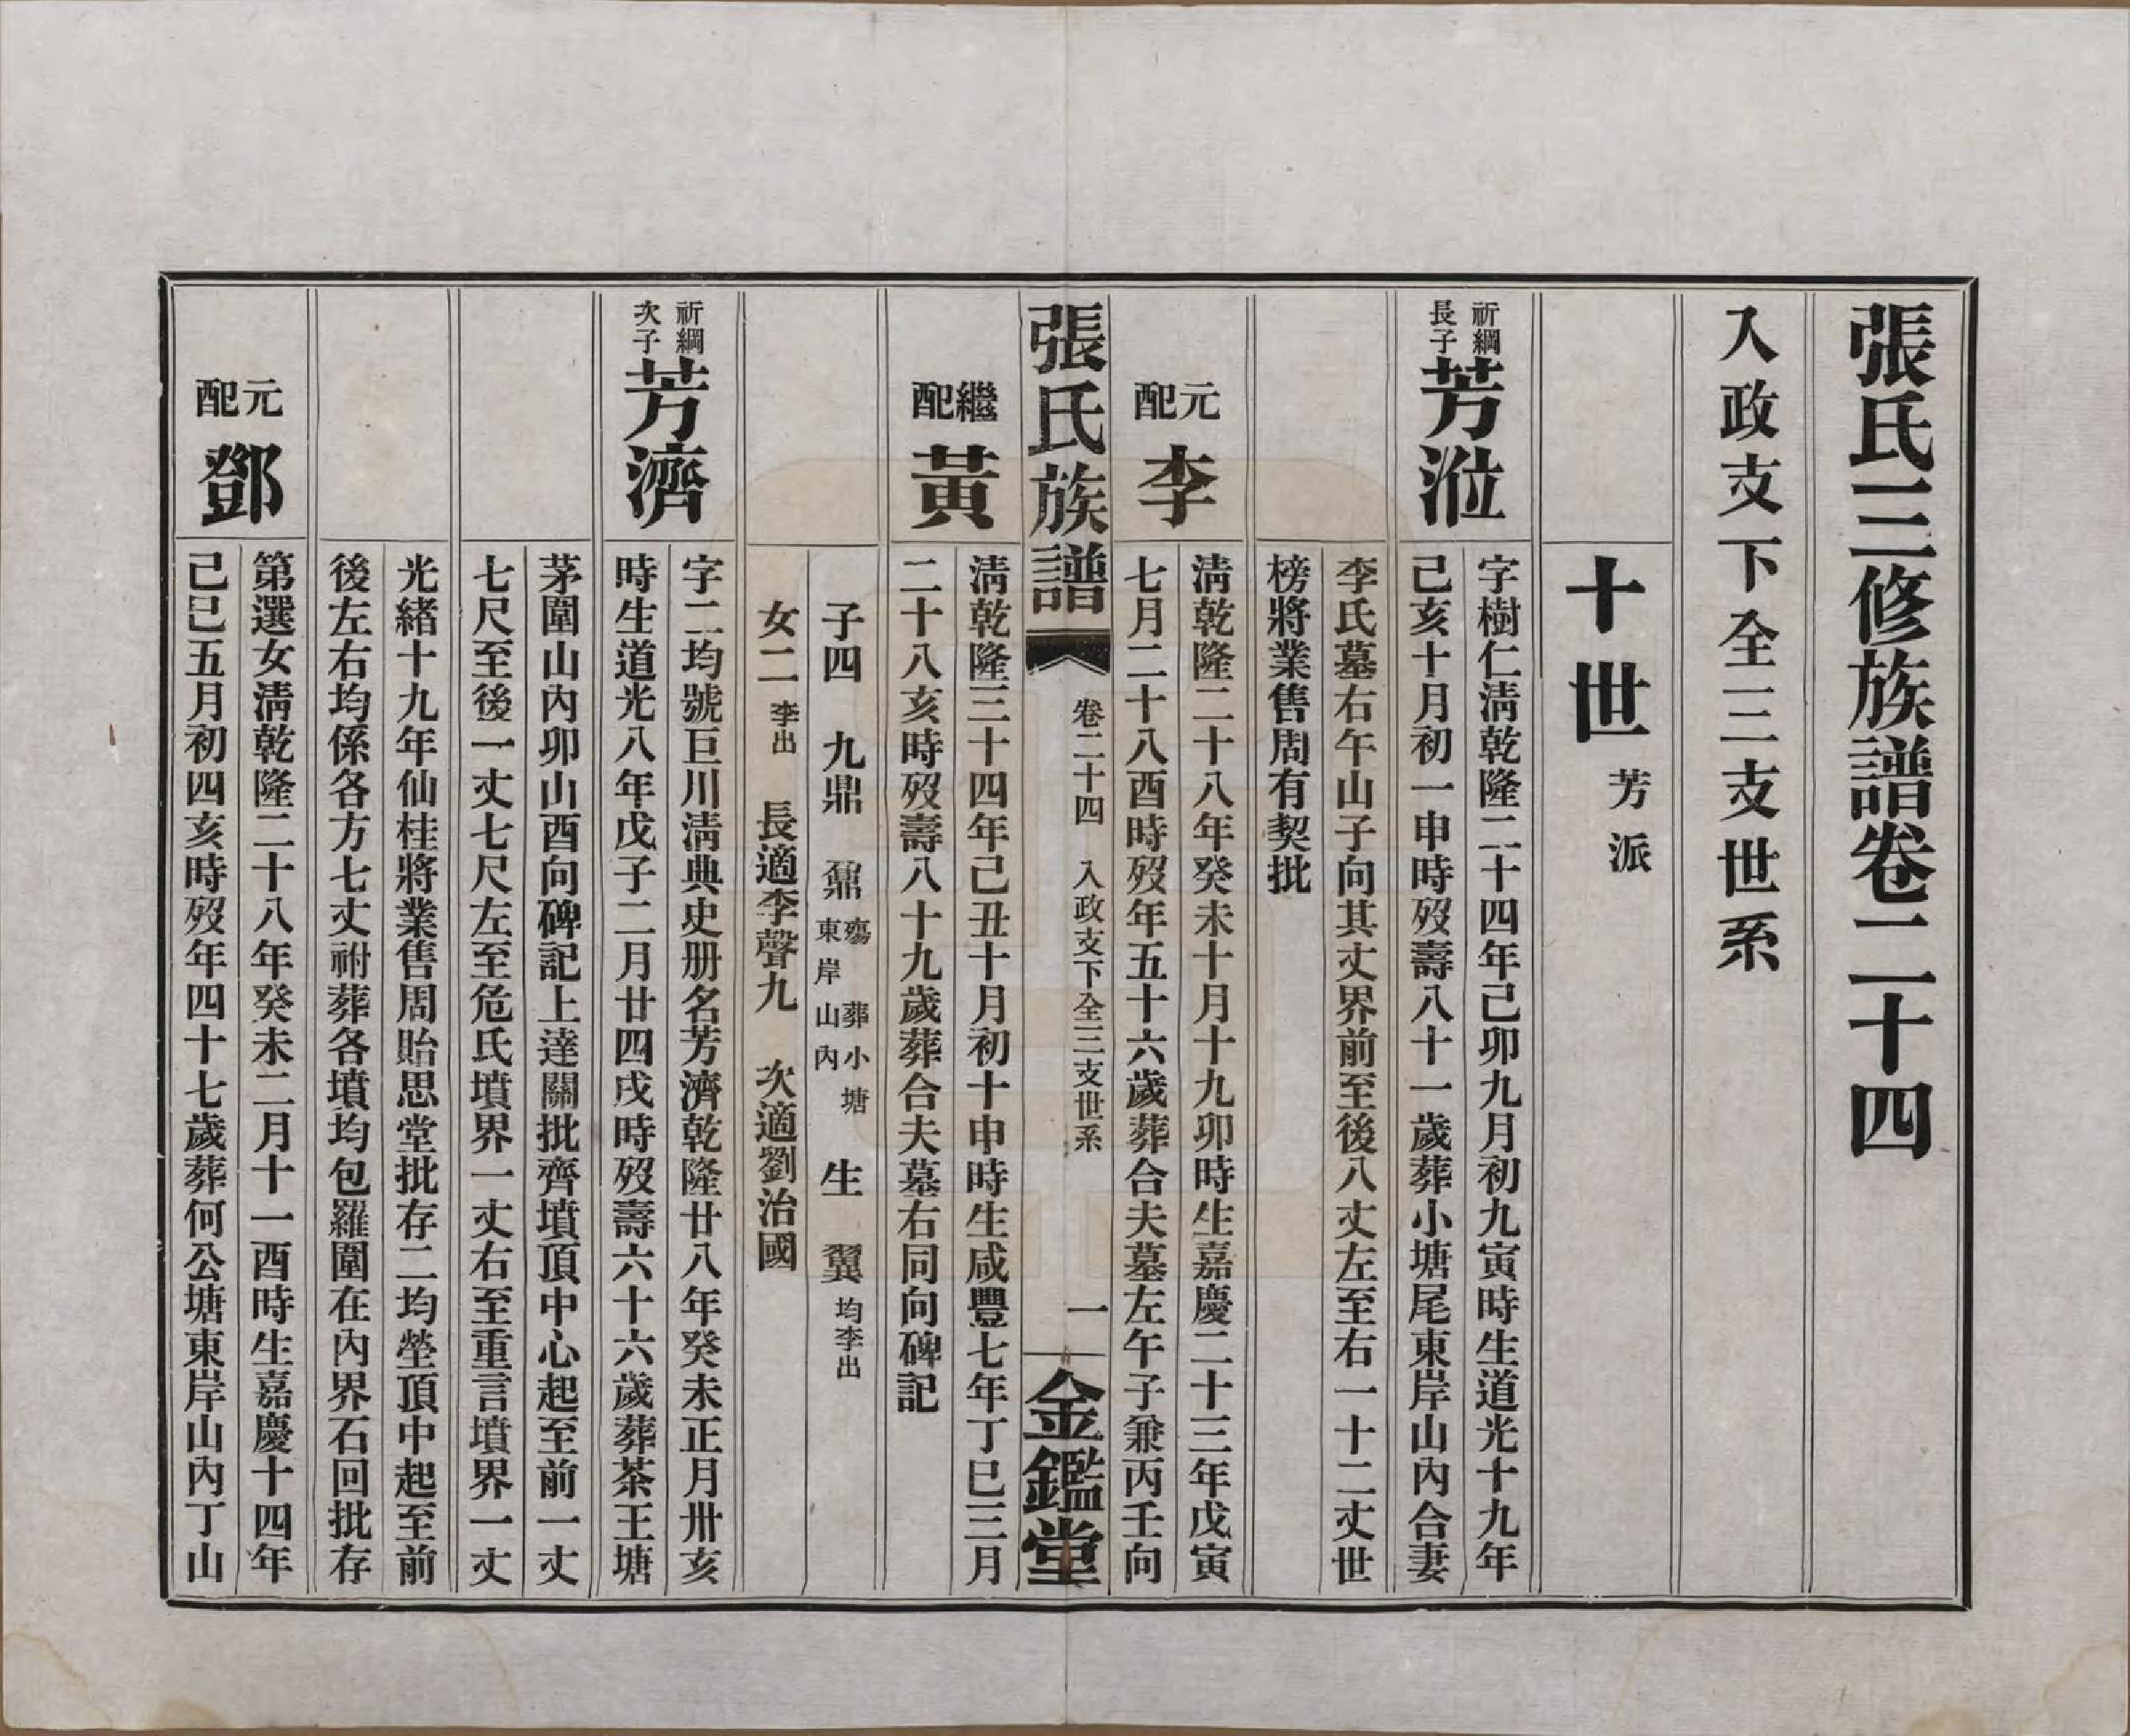 張氏三修族譜卷二十四
入政支下全三支世系
十世 芳派
祈綱長子 芳涖
字樹仁清乾隆二十四年己卯九月初九寅時生道光十九年
己亥十月初一申時歿壽八十一歲葬小塘尾東岸山內合妻
李氏墓右午山子向其丈界前至後八丈左至右一十二丈世
榜將業售周有契批
元配 李
清乾隆二十八年癸未十月十九卯時生嘉慶二十三年戊寅
七月二十八酉時歿年五十六歲葬合夫墓左午子兼丙壬向
張氏族譜 卷二十四 入政支下全三支世系 一 金鑑堂
繼配 黃
清乾隆三十四年己丑十月初十申時生咸豐七年丁巳三月
二十八亥時歿壽八十九歲葬合夫墓右同向碑記
子四 九鼎 鼐 殤葬小塘東岸山內 生 翼 均李出
女二 李出 長適李聲九 次適劉治國
祈綱次子 芳濟
字二均號巨川清典史册名芳濟乾隆廿八年癸未正月卅亥
時生道光八年戊子二月廿四戌時歿壽六十六歲葬茶王塘
茅圍山內卯山酉向碑記上達關批齊墳頂中心起至前一丈
七尺至後一丈七尺左至危氏墳界一丈右至重言墳界一丈
光緒十九年仙桂將業售周貽思堂批存二均塋頂中起至前
後左右均係各方七丈祔葬各墳均包羅圍在內界石回批存
元配 鄧
第選女清乾隆二十八年癸未二月十一酉時生嘉慶十四年
己巳五月初四亥時歿年四十七歲葬何公塘東岸山內丁山